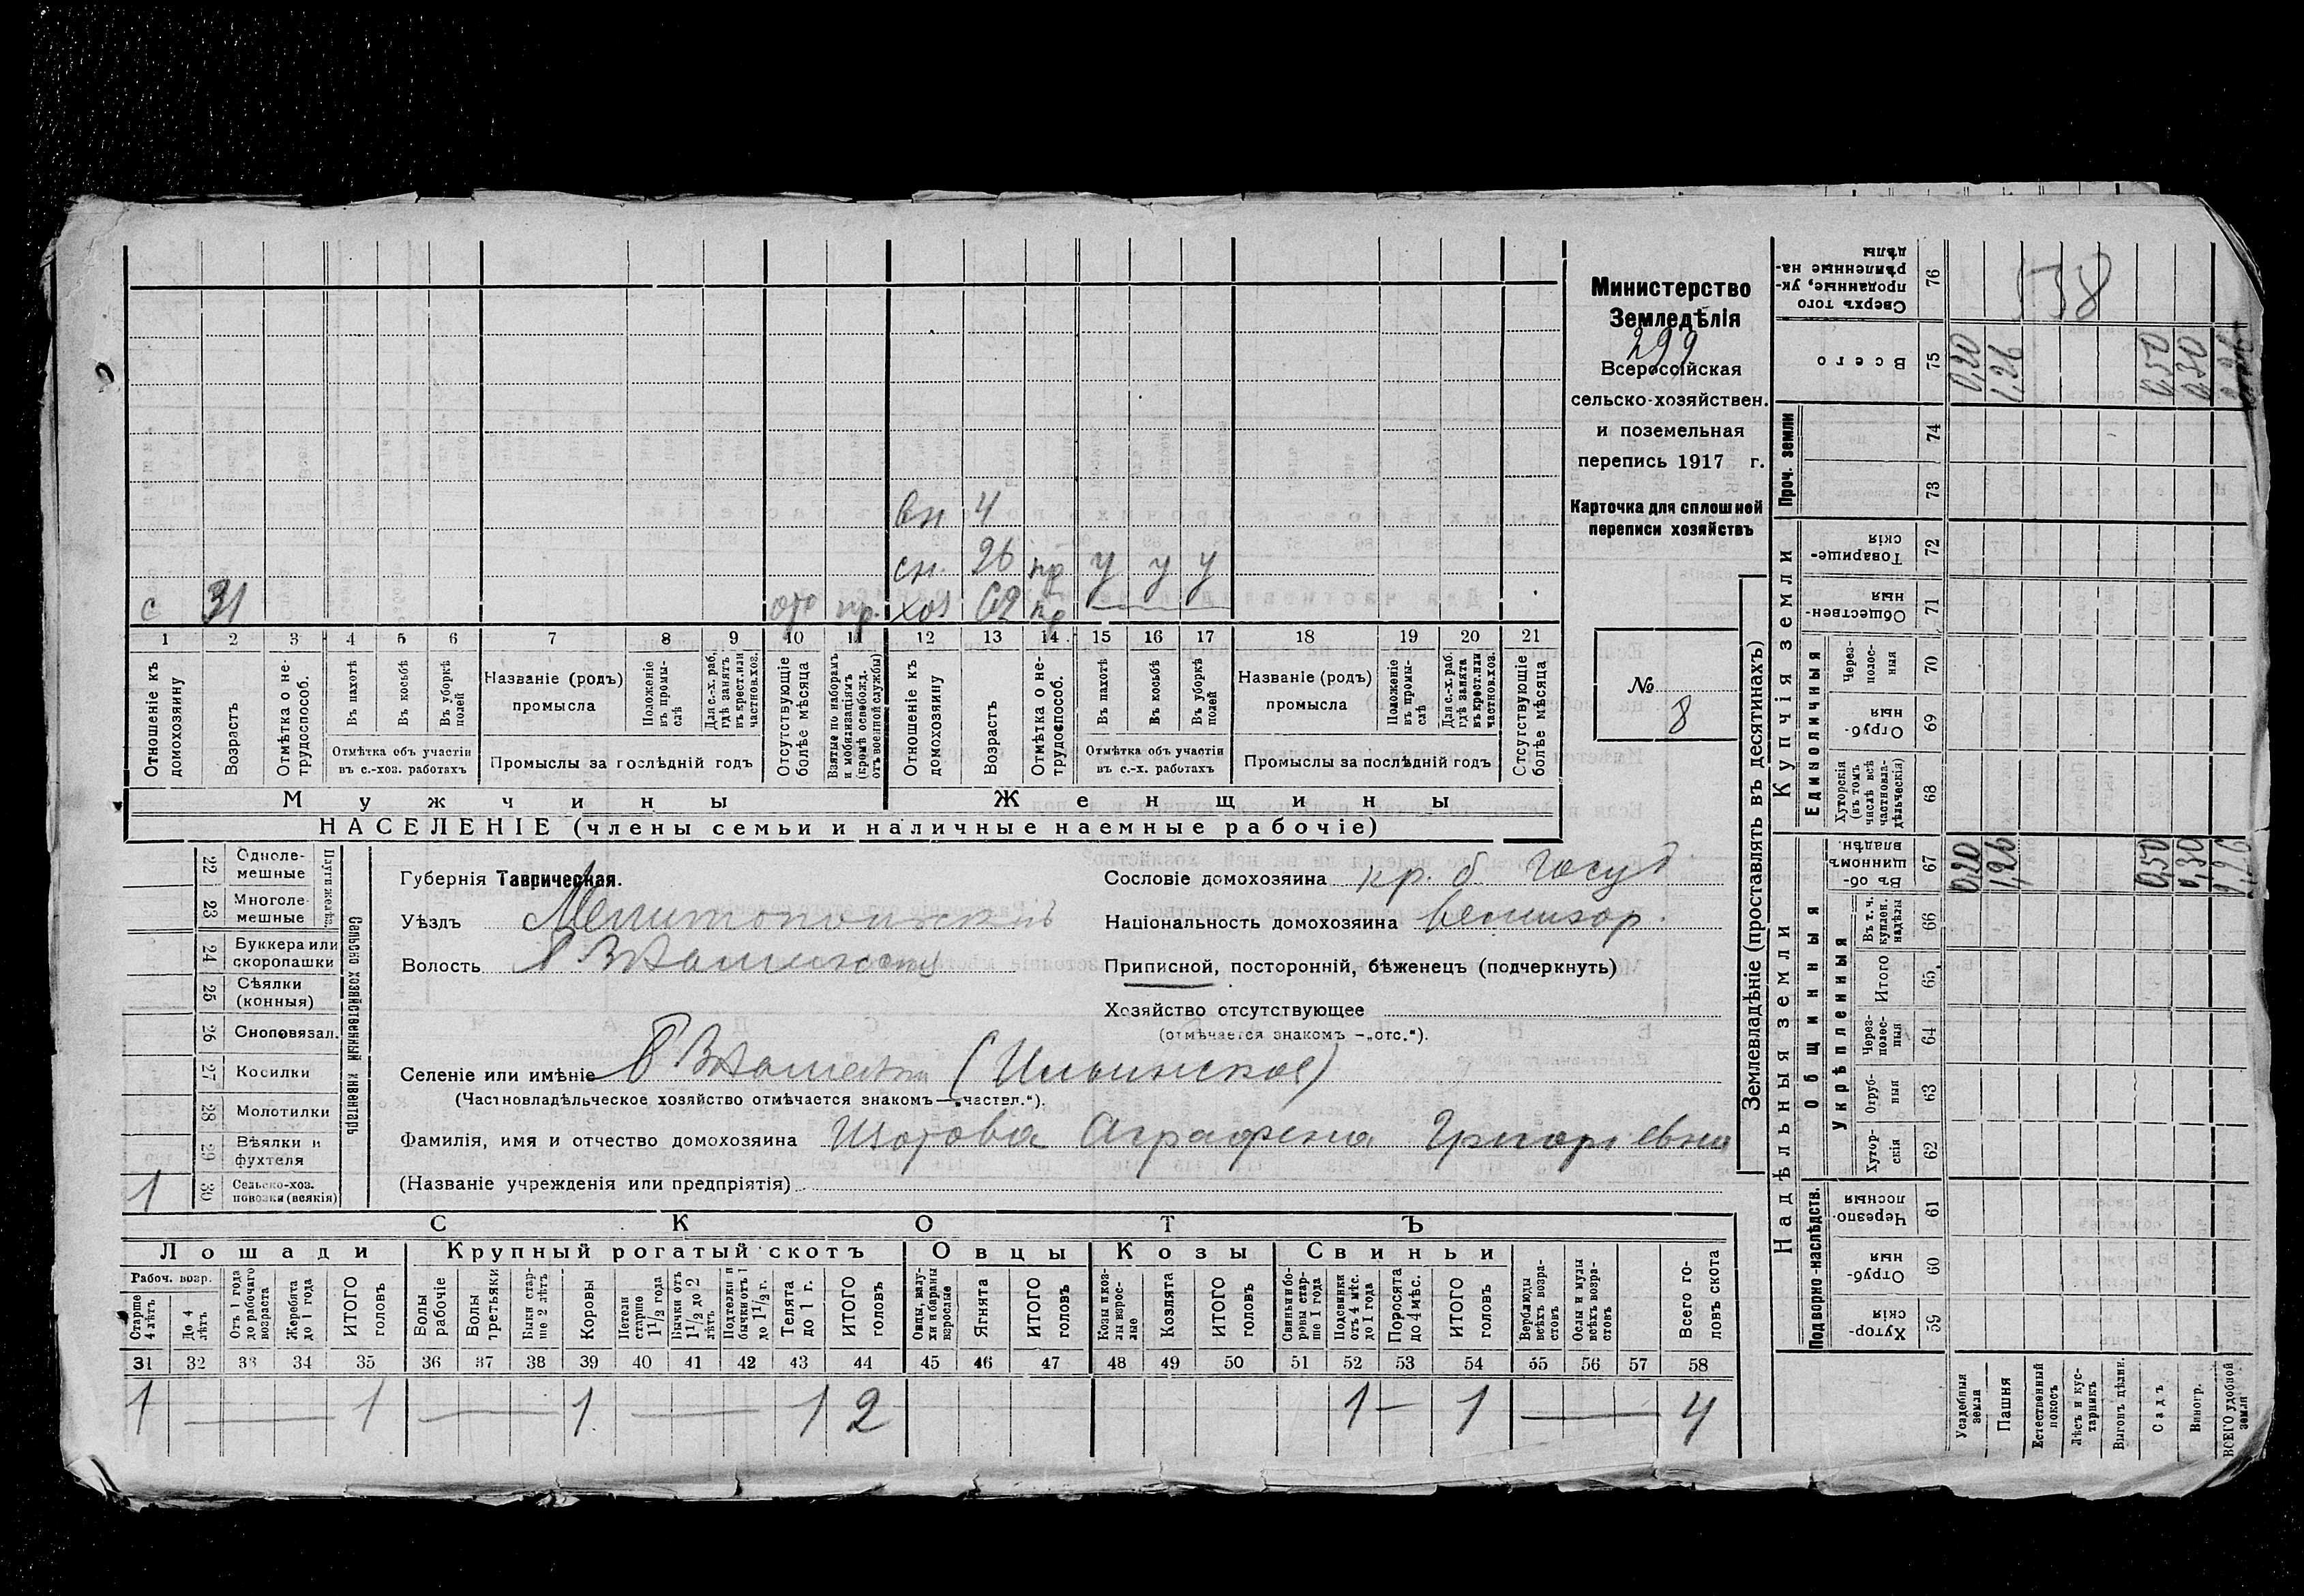 Министерство
Земледѣлія
299
Всероссійская
сельско-хозяйствен.
и поземельная
перепись 1917 г.
Карточка для сплошной
переписи хозяйствъ
№
8
вн 4
сн. 26 нр у у у
с 31 отс пр. хоз 62 нр
1 2 3 4 5 6 7 8 9 10 11 12 13 14 15 16 17 18 19 20 21
Отношеніе къ домохозяину
Возрастъ
Отмѣтка о не-трудоспособ.
Въ пахотѣ
Въ косьбѣ
Въ уборкѣ полей
Отмѣтка объ участіи въ с.-хоз. работахъ
Названіе (родъ) промысла
Положеніе въ промы-слѣ
Для с.-х. раб. гдѣ занятъ въ крест. или частнов. хоз.
Промыслы за послѣдній годъ
Отсутствующіе болѣе мѣсяца
Взятые по наборамъ и мобилизаціямъ (кромѣ освобожд. отъ военной службы)
Отношеніе къ домохозяину
Возрастъ
Отмѣтка о не-трудоспособ.
Въ пахотѣ
Въ косьбѣ
Въ уборкѣ полей
Отмѣтка объ участіи въ с.-х. работахъ
Названіе (родъ) промысла
Положеніе въ промы-слѣ
Для с.-х. раб. гдѣ занята въ крест. или частнов. хоз.
Промыслы за послѣдній годъ
Отсутствующіе болѣе мѣсяца
Мужчины
Женщины
НАСЕЛЕНІЕ (члены семьи и наличные наемные рабочіе)
22 Одноле-мешные
23 Многоле-мешные
Плуги желѣз.
24 Буккера или скоропашки
25 Сѣялки (конныя)
26 Сноповязал.
27 Косилки
28 Молотилки
29 Вѣялки и фухтеля
1 30 Сельско-хоз. повозки (всякія)
Сельско хозяйственный инвентарь
Губернія Таврическая.
Уѣздъ Мелитопольскій
Волость
Сословіе домохозяина кр. б. госуд
Національность домохозяина
Приписной, посторонній, бѣженецъ (подчеркнуть)
Хозяйство отсутствующее
(отмѣчается знакомъ —„отс.“).
Селеніе или имѣніе (Ильинское)
(Частновладѣльческое хозяйство отмѣчается знакомъ—„частвл.“).
Фамилія, имя и отчество домохозяина Изотова Аграфена Григоріевна
(Названіе учрежденія или предпріятія)
СКОТЪ
Лошади Крупный рогатый скотъ Овцы Козы Свиньи
Рабоч. возр.
Старше 4 лѣтъ
До 4 лѣтъ
Отъ 1 года до рабочаго возраста
Жеребята до 1 года
ИТОГО головъ
Волы рабочіе
Волы третьяки
Быки стар-ше 2 лѣтъ
Коровы
Нетели старше 1 1/2 года
Бычки отъ 1 1/2 до 2 лѣтъ
Подтелки и бычки отъ 1 до 1 1/2 г.
Телята до 1 г.
ИТОГО головъ
Овцы, валу-хи и бараны взрослые
Ягнята
ИТОГО головъ
Козы и коз-лы взрос-лые
Козлята
ИТОГО головъ
Свиньи и бо-ровы стар-ше 1 года
Подсвинки отъ 4 мѣс. до 1 года
Поросята до 4 мѣс.
ИТОГО головъ
Верблюды всѣхъ возра-стовъ
Ослы и мулы всѣхъ возра-стовъ
Всего го-ловъ скота
31 32 33 34 35 36 37 38 39 40 41 42 43 44 45 46 47 48 49 50 51 52 53 54 55 56 57 58
1 — 1 — 1 — 1 2 1 — 1 — 4
Землевладѣніе (проставлять въ десятинахъ)
Надѣльныя земли
Купчія земли
Проч. земли
Подворно-наслѣдств.
Общинныя
Укрѣпленныя
Единоличныя
Сверхъ того проданные, ук-рѣпленные на-дѣлы 76 158
Всего 75 0,20 1,26 0,50 0,30
74
73
Товарище-скія 72
Обществен-ныя 71
Через-полос-ныя 70
Отруб-ныя 69
Хуторскія (въ томъ числѣ всѣ частновла-дѣльческія) 68
Въ об-щинномъ владѣн. 67 0,20 1,26 0,50 0,30 2,26
Въ т. ч. куплен. надѣлы 66
Итого 65
Через-полос-ныя 64
Отруб-ныя 63
Хутор-скія 62
Черезпо-лосныя 61
Отруб-ныя 60
Хутор-скія 59
Усадебная земля
Пашня
Естественный покосъ
Лѣсъ и кус-тарникъ
Выгонъ цѣлин.
Садъ
Виногр.
ВСЕГО удобной земли